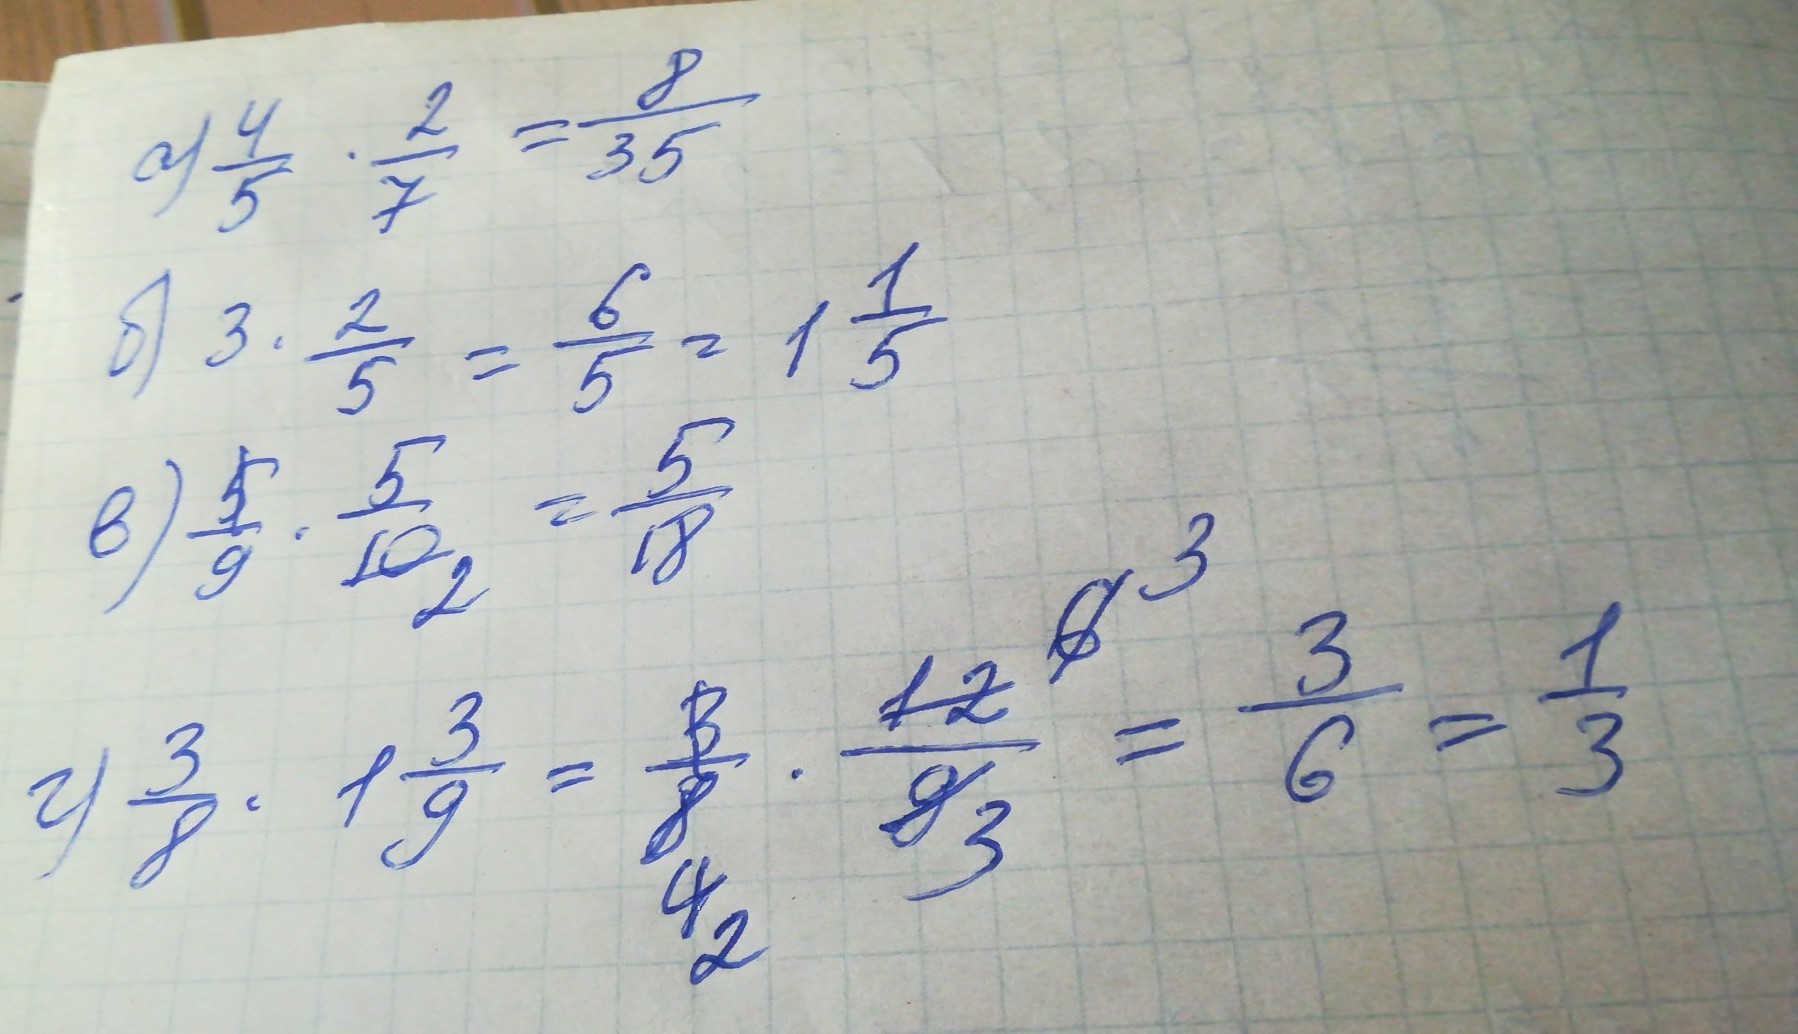 а) 4/5 · 2/7 = 8/35
б) 3 · 2/5 = 6/5 = 1 1/5
в) 5/9 · 5/10 2 = 5/18
г) 3/8 · 1 3/9 = 3/8 4 2 · 12 6 3/9 3 = 3/6 = 1/3